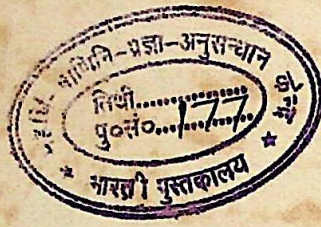 महर्षि-पाणिनि-प्रज्ञा-अनुसन्धान
तिथी...............
पु०सं०....177.......
* भारती पुस्तकालय *